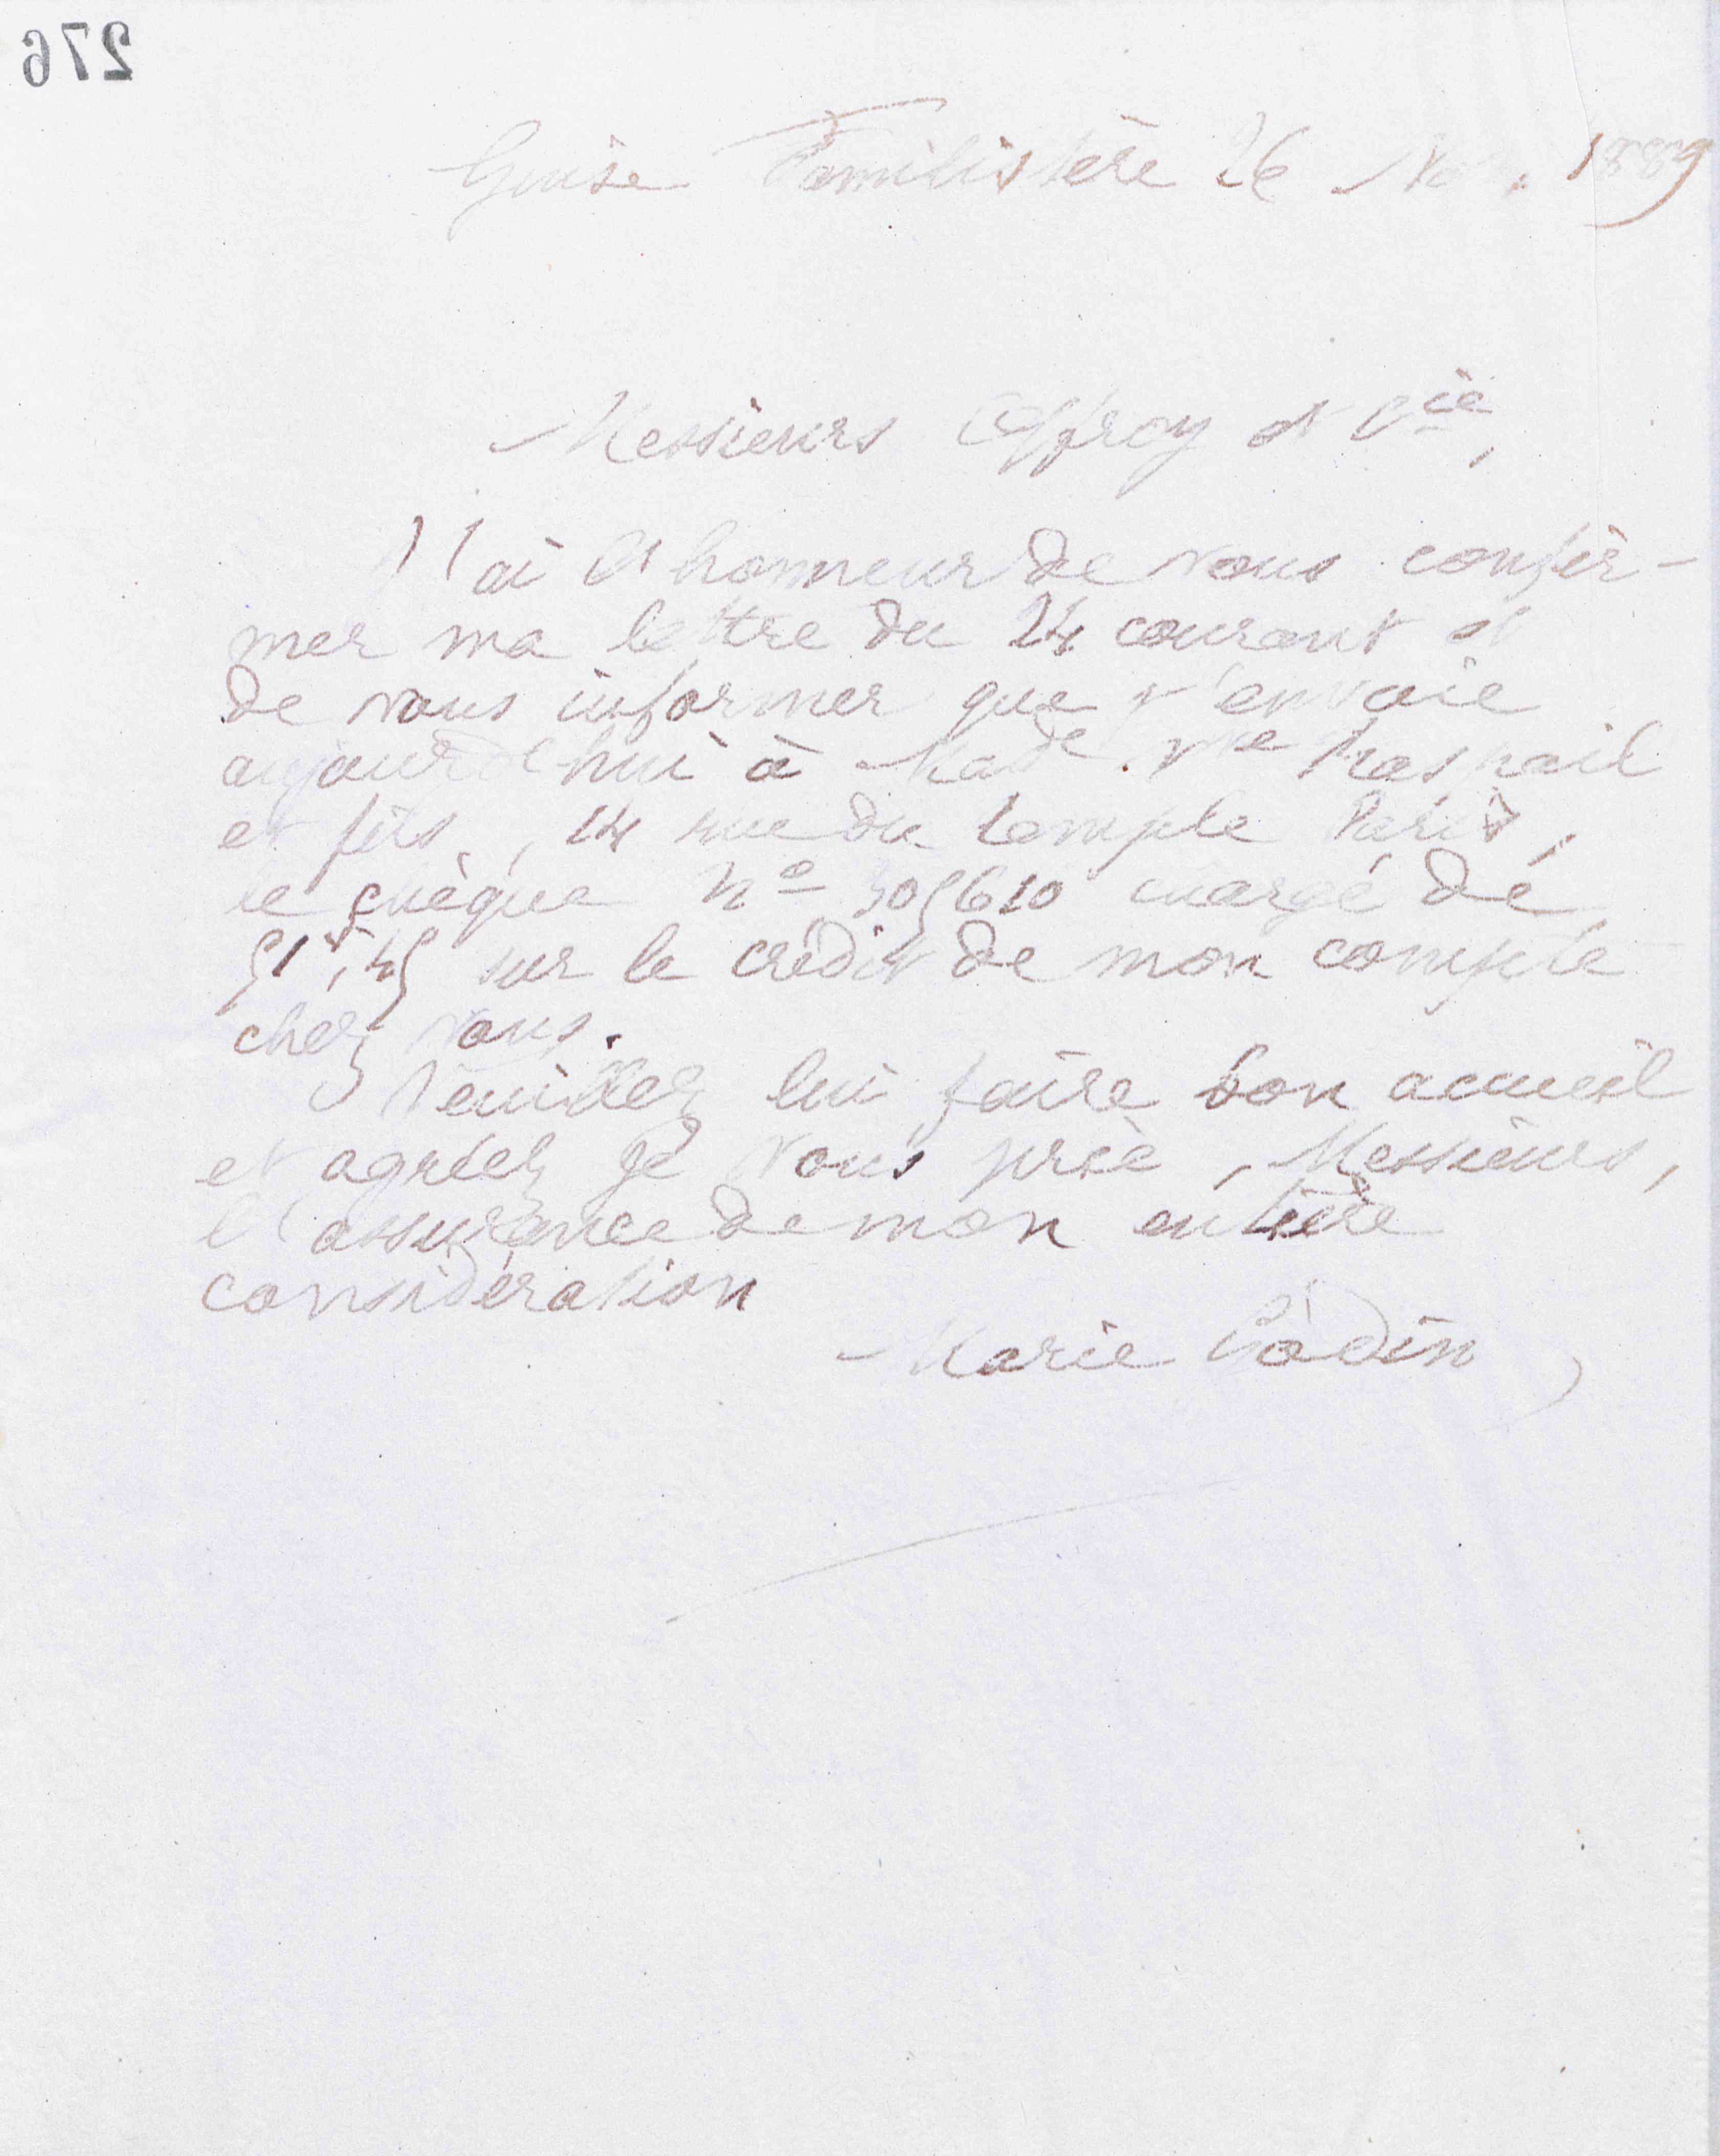 276
Guise Familistère 26 Nov. 1889
Messieurs Offroy et Cie,
J'ai l'honneur de vous confir-
mer ma lettre du 24 courant et
de vous informer que j'envoie
aujourd'hui à Made Vve Raspail
et fils, 14 rue du temple Paris,
le chèque no 305610 chargé de
51f,45 sur le crédit de mon compte
chez vous.
Veuillez lui faire bon accueil
et agréez je vous prie, Messieurs,
l'assurance de mon entière
considération
Marie Godin